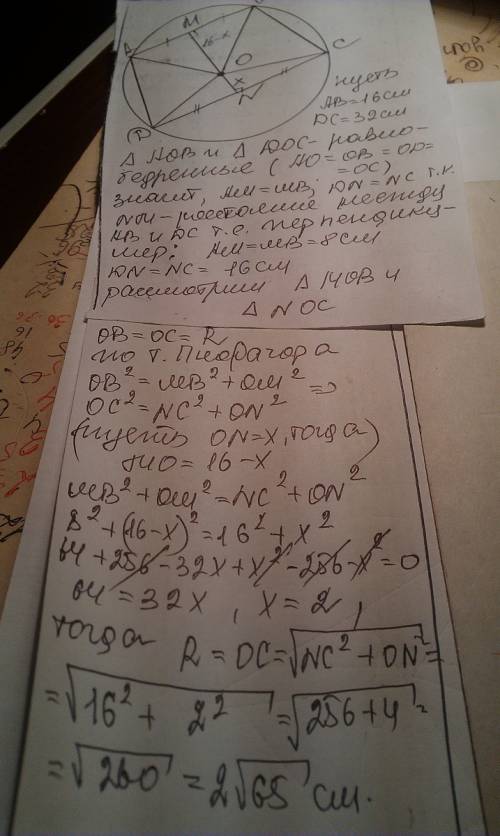 M
16-x
A
O
C
x
N
D
пусть
AB=16см
DC=32см
△ AOB и △ DOC- равно-
бедренные (AO=OB=OD=
=OC)
значит, AM=MB; DN=NC т.к.
NM-расстояние между
AB и DC т.е. перпендику-
ляр; AM=MB=8см
DN=NC= 16см
рассмотрим △ MOB и
△ NOC
OB=OC=R
по т. Пифагора
OB²=MB²+OM² =>
OC²=NC²+ON²
(пусть ON=x, тогда)
MO=16-x
MB²+OM²=NC²+ON²
8²+(16-x)²=16²+x²
64+256-32x+x²-256-x²=0
64=32x, x=2,
тогда R=OC=√NC²+ON²=
=√16²+ 2² =√256+4=
=√260=2√65 см.